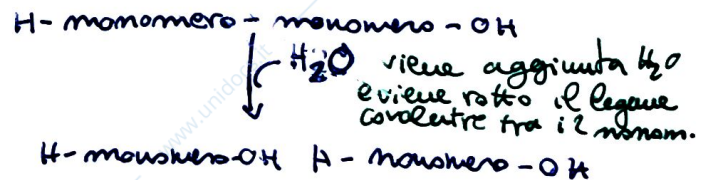 H- monomero - monomero - OH
H2O viene aggiunta H2O
e viene rotto il legame
covalentre tra i 2 monom.
H- monomero-OH H - monomero - OH